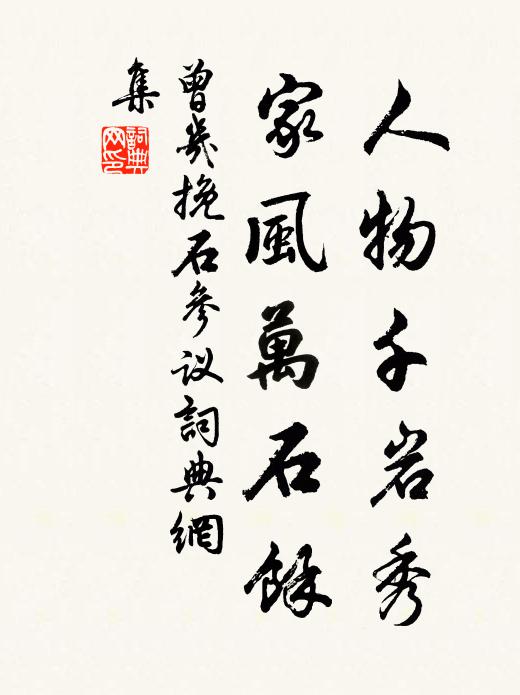 人物千岩秀
家風萬石餘
曾幾挽石參议詞典網
集
詞典网印